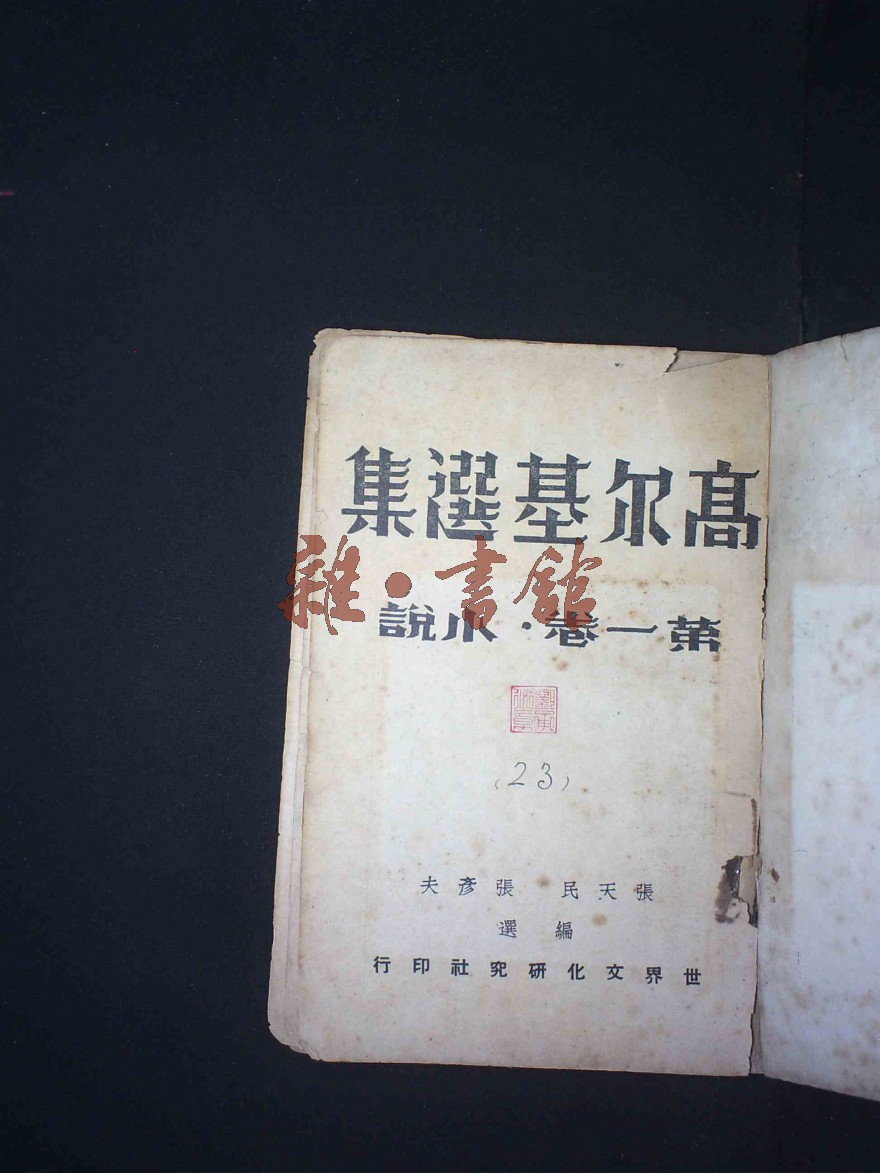 高尔基選集
雜·書館
第一卷·小說
(23)
張天民 張彥夫
編選
世界文化研究社印行